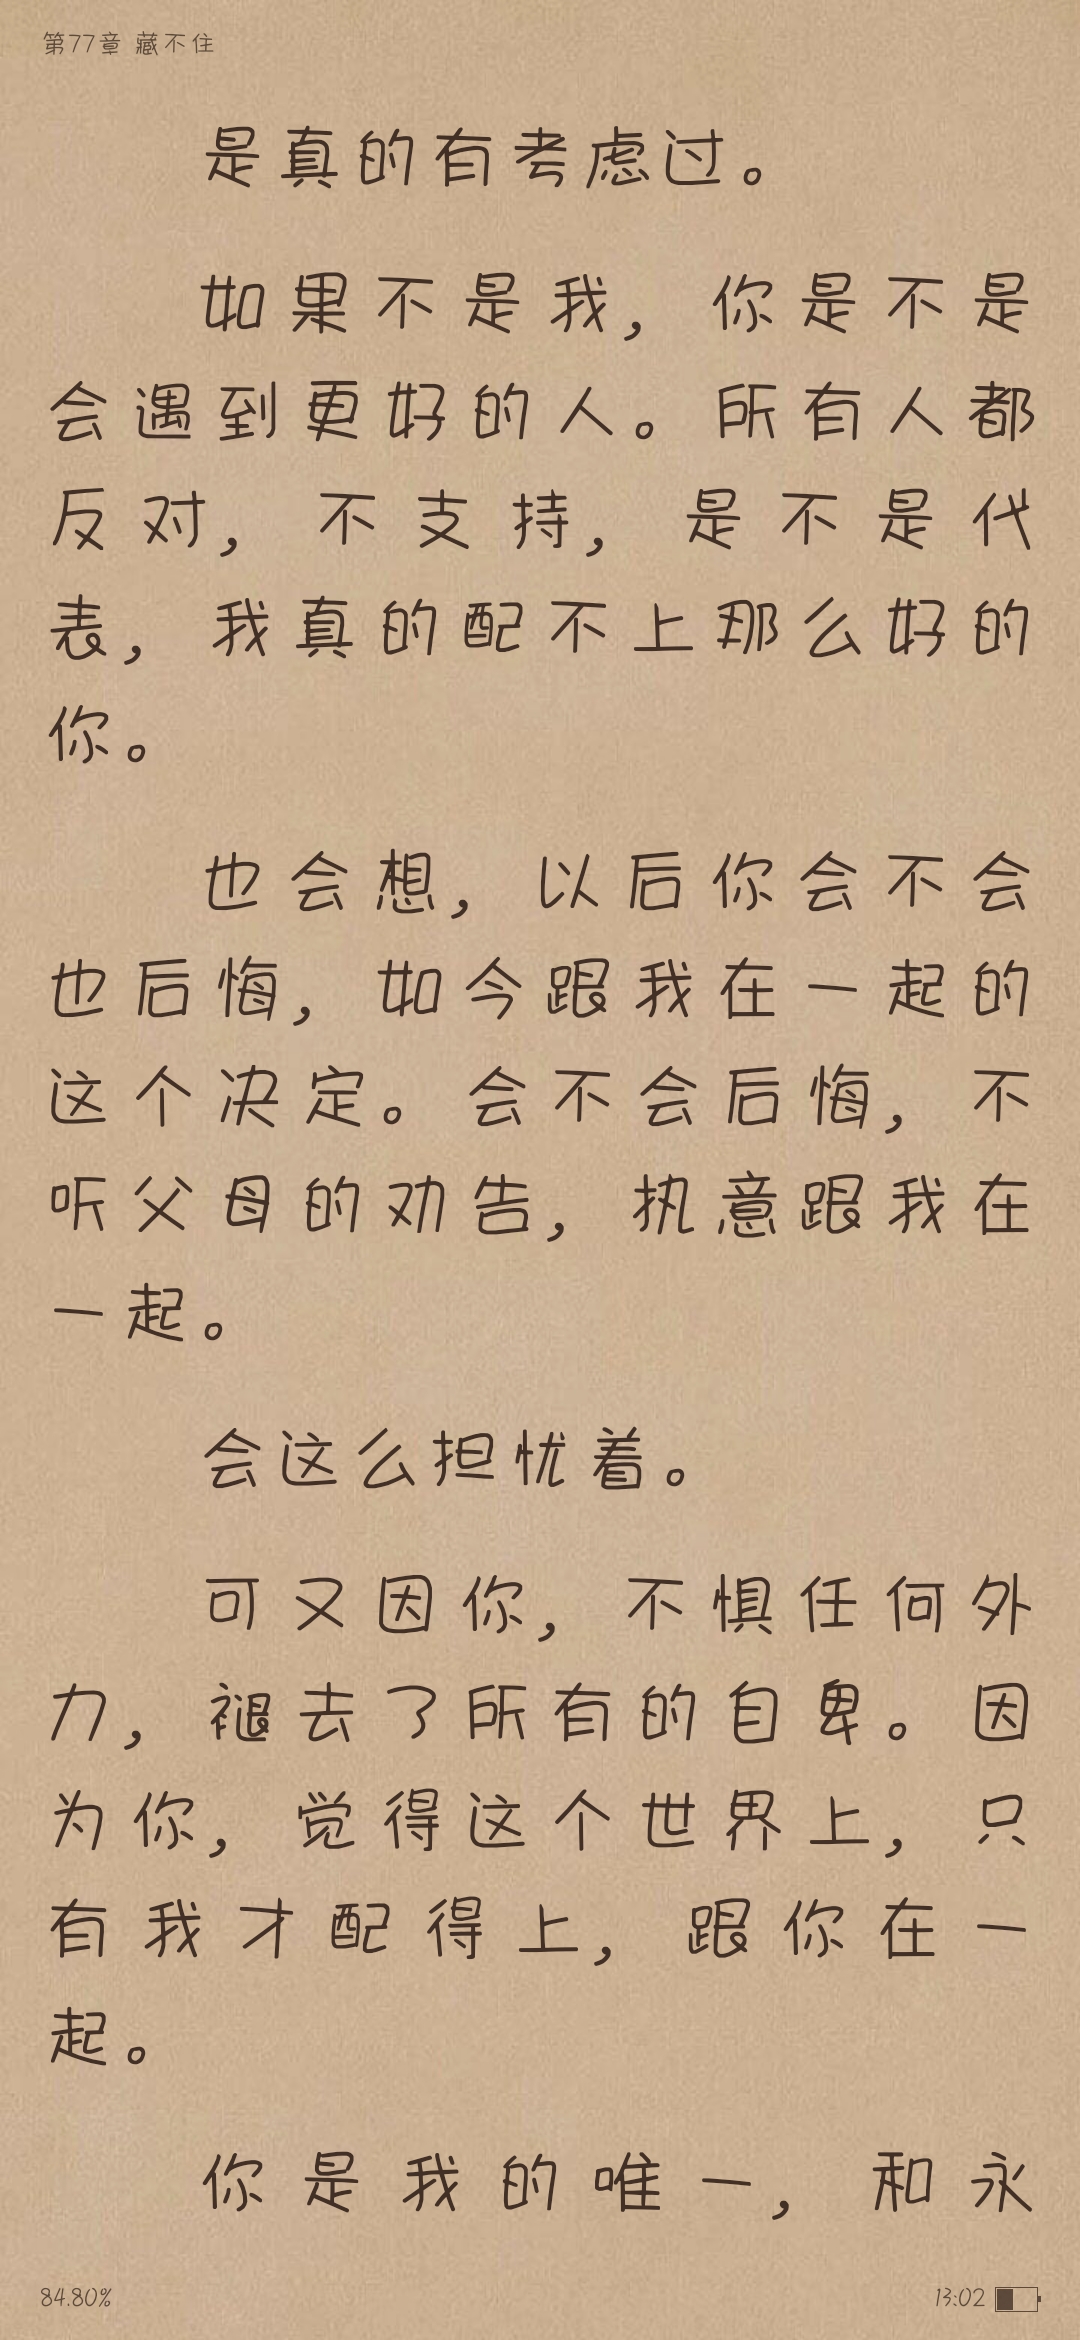 第77章 藏不住
是真的有考虑过。
如果不是我，你是不是
会遇到更好的人。所有人都
反对，不支持，是不是代
表，我真的配不上那么好的
你。
也会想，以后你会不会
也后悔，如今跟我在一起的
这个决定。会不会后悔，不
听父母的劝告，执意跟我在
一起。
会这么担忧着。
可又因你，不惧任何外
力，褪去了所有的自卑。因
为你，觉得这个世界上，只
有我才配得上，跟你在一
起。
你是我的唯一，和永
84.80%
13:02